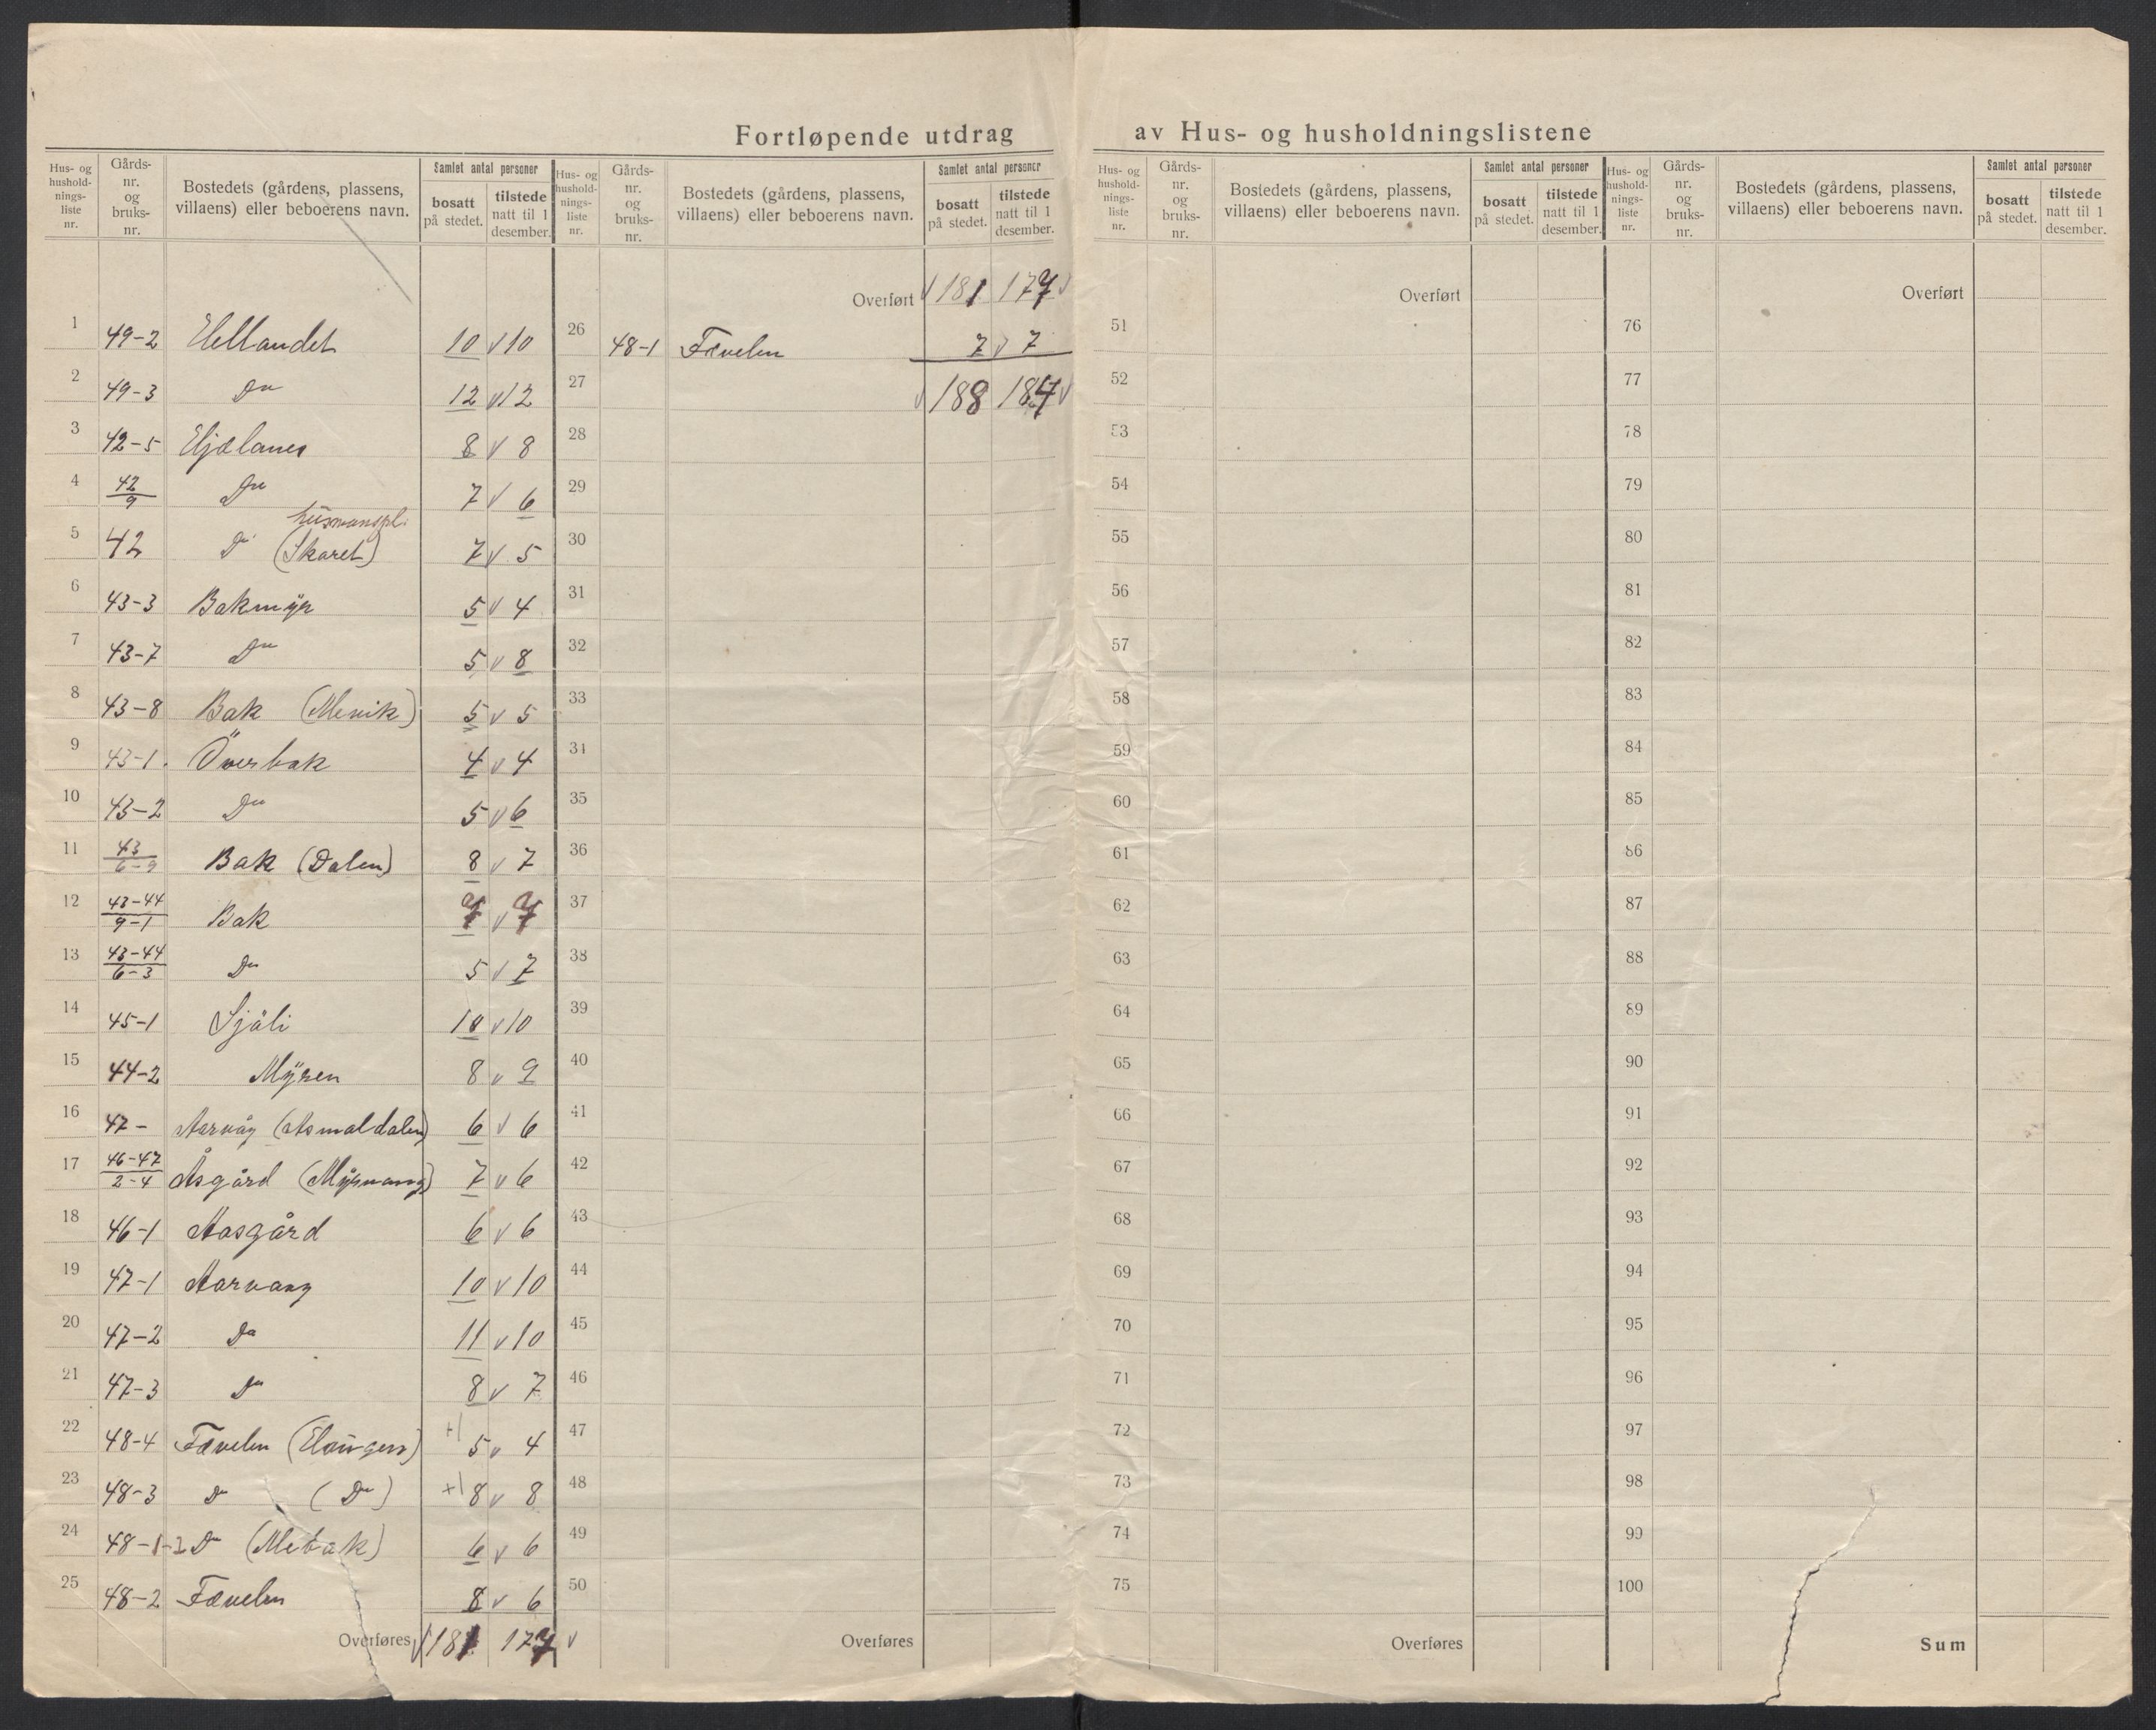 Fortløpende utdrag av Hus- og husholdningslistene
Hus- og hushold-nings-liste nr. | Gårds-nr. og bruks-nr. | Bostedets (gårdens, plassens, villaens) eller beboerens navn. | Samlet antal personer | bosatt på stedet. | tilstede natt til 1 desember.
1 49-2 Hellandet 10 v 10
2 49-3 Do 12 v 12
3 42-5 Hjelanes 8 v 8
4 42/9 Do 7 v 6
husmanspl.
5 42 Do (Skaret) 7 v 5
6 43-3 Bakmyr 5 v 4
7 43-7 Do 5 v 8
8 43-8 Bak (Mevik) 5 v 5
9 43-1. Överbak 4 v 4
10 43-2 Do 5 v 6
11 43/6-9 Bak (Dalen) 8 v 7
12 43-44/9-1 Bak v
13 43-44/6-3 Do 5 v 7
14 45-1 Sjåli 10 v 10
15 44-2 Myren 8 v 9
16 47- Aarvåg (Asmaldalen) 6 v 6
17 46-47/2-4 Åsgård (Myrvang) 7 v 6
18 46-1 Aasgård 6 v 6
19 47-1 Aarvang 10 v 10
20 47-2 Do 11 v 10
21 47-3 Do 8 v 7
22 48-4 Fævelen +1 5 v 4
23 48-3 Do (Do) +1 8 v 8
24 48-1-2 Do (Mebak) 6 v 6
25 48-2 Fævelen 8 v 6
Overføres v 181 177 v
Hus- og hushold-nings-liste nr. | Gårds-nr. og bruks-nr. | Bostedets (gårdens, plassens, villaens) eller beboerens navn. | Samlet antal personer | bosatt på stedet. | tilstede natt til 1 desember.
Overført v 181 177 v
26 48-1 Fævelen 7 v 7
27 v 188 184 v
28
29
30
31
32
33
34
35
36
37
38
39
40
41
42
43
44
45
46
47
48
49
50
Overføres
Hus- og hushold-nings-liste nr. | Gårds-nr. og bruks-nr. | Bostedets (gårdens, plassens, villaens) eller beboerens navn. | Samlet antal personer | bosatt på stedet. | tilstede natt til 1 desember.
Overført
51
52
53
54
55
56
57
58
59
60
61
62
63
64
65
66
67
68
69
70
71
72
73
74
75
Overføres
Hus- og hushold-nings-liste nr. | Gårds-nr. og bruks-nr. | Bostedets (gårdens, plassens, villaens) eller beboerens navn. | Samlet antal personer | bosatt på stedet. | tilstede natt til 1 desember.
Overført
76
77
78
79
80
81
82
83
84
85
86
87
88
89
90
91
92
93
94
95
96
97
98
99
100
Sum